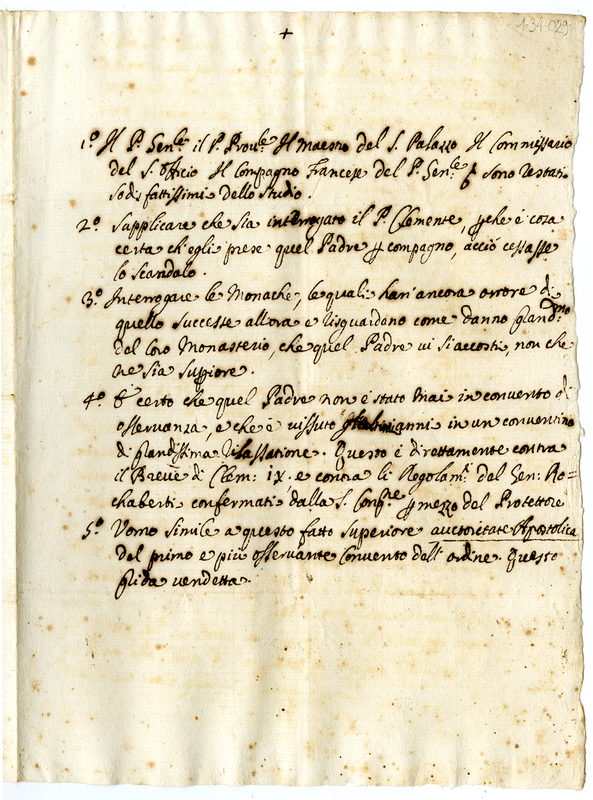 1-34-029
+
1.º Il P. Gen.le il P. Prov.le Il Maestro del S. Palazzo Il Commissario
del S. Officio Il Compagno Francese del P. Gen.le sono restati
sodisfattissimi dello studio.
2.º Supplicare che sia interrogato il P. Clemente, perche è cosa
certa ch'egli prese quel Padre per compagno, acciò cessasse
lo scandalo.
3.º Interrogare le Monache, le quali han' ancora orrore di
quello successe allora e risguardano come danno grand.mo
del loro Monasterio, che quel Padre vi si accosti, non che
ne sia superiore.
4.º È certo che quel Padre non è stato mai in convento di
osservanza, e che è vissuto anni in un conventino
di grandissima rilassatione. Questo è direttamente contra
il Breve di Clem: IX. e contra li Regolam.ti del Gen: Ro=
chaberti confermati dalla S. Cong.ne per mezzo del Protettore
5.º Uomo simile a questo fatto superiore auctoritate Apostolica
del primo e più osservante convento dell' ordine. Questo
grida vendetta.